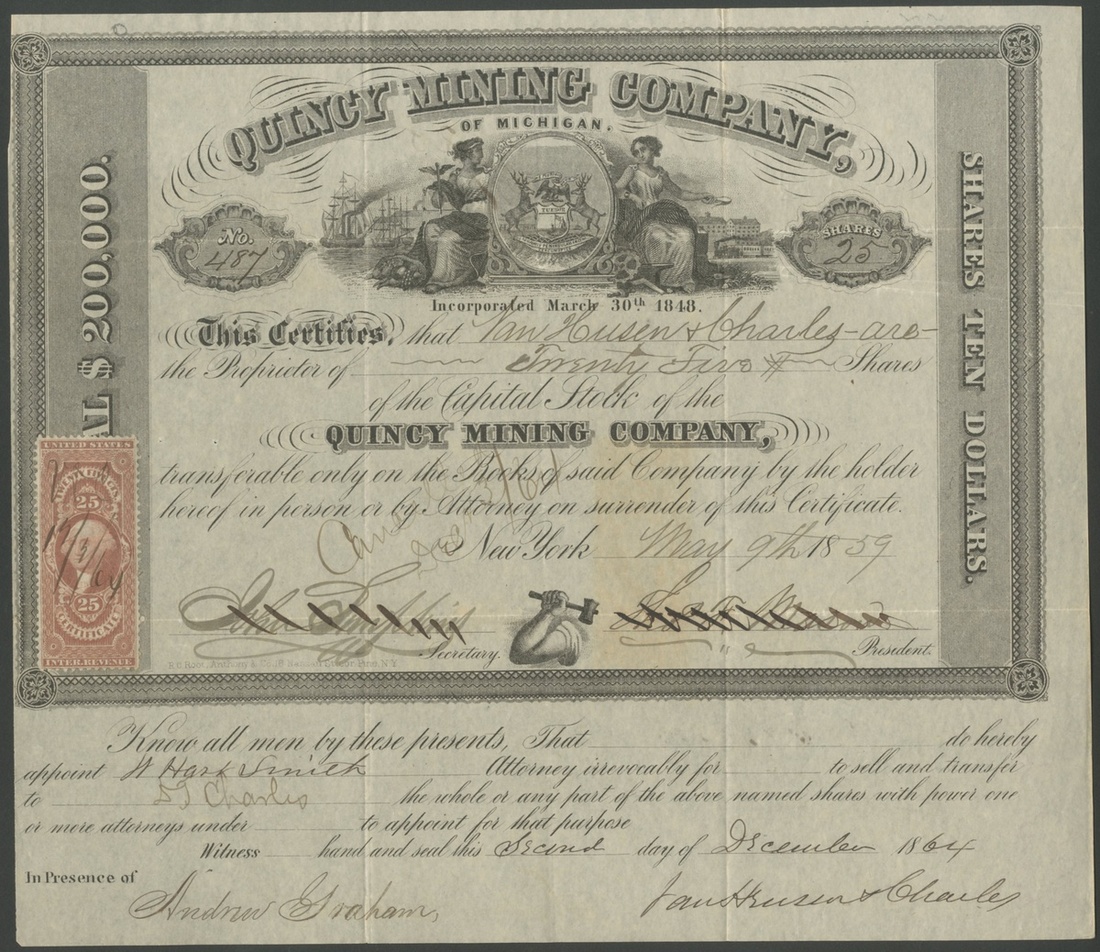 QUINCY MINING COMPANY,
OF MICHIGAN.
No.
487
TUEBOR
SHARES
25
Incorporated March 30th. 1848.
This Certifies, that Van Husen & Charles - are -
the Proprietor of Twenty Five Shares
of the Capital Stock of the
QUINCY MINING COMPANY,
transferable only on the Books of said Company by the holder
hereof in person or by Attorney on surrender of this Certificate.
New York May 9th 1859
Secretary.
President.
AL $200,000.
SHARES TEN DOLLARS.
UNITED STATES
25
25
CERTIFICATE
INTER. REVENUE
Know all men by these presents, That do hereby
appoint W Hart Smith Attorney irrevocably for to sell and transfer
to Charles the whole or any part of the above named shares with power one
or more attorneys under to appoint for that purpose
Witness hand and seal this Second day of December 1864
In Presence of
Andrew Graham,
Van Husen & Charles